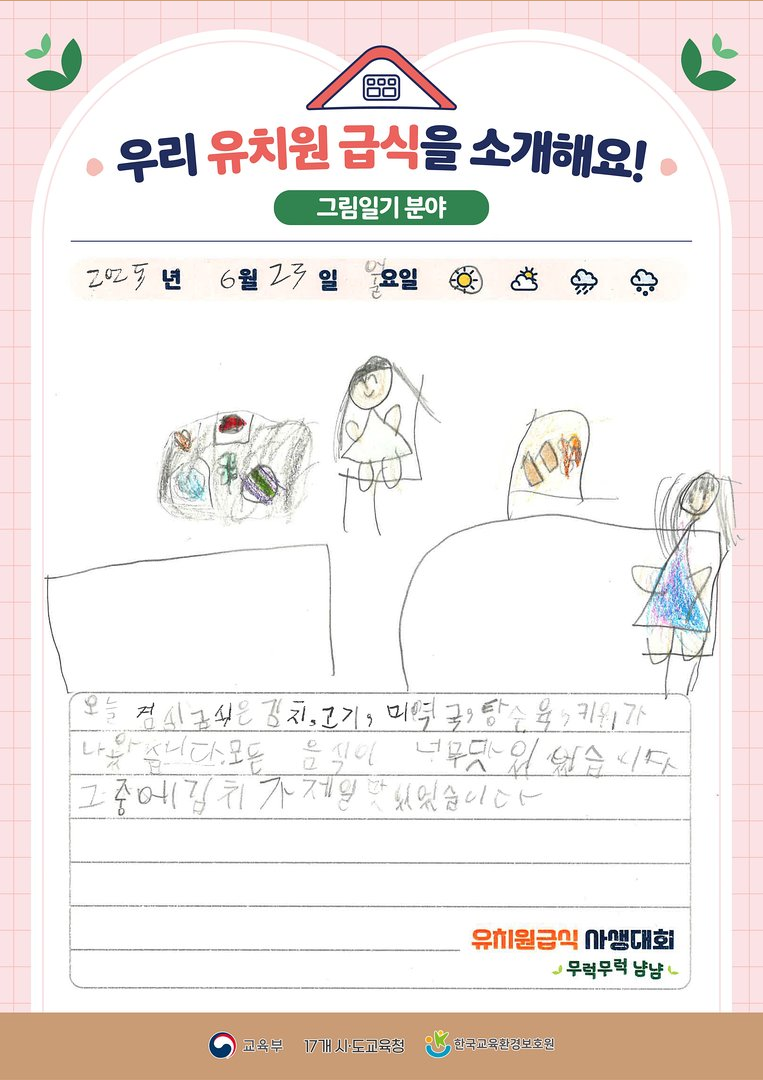 우리 유치원 급식을 소개해요!
그림일기 분야
2025년 6월 23일 월요일
오늘 점심급식은 김치,고기, 미역국,탕수육,키위가
나왔습니다.모든 음식이 너무맛있었습니다
그중에김치가 제일 맛있었습니다
유치원급식 사생대회
무럭무럭 냠냠
교육부 17개 시·도교육청 한국교육환경보호원